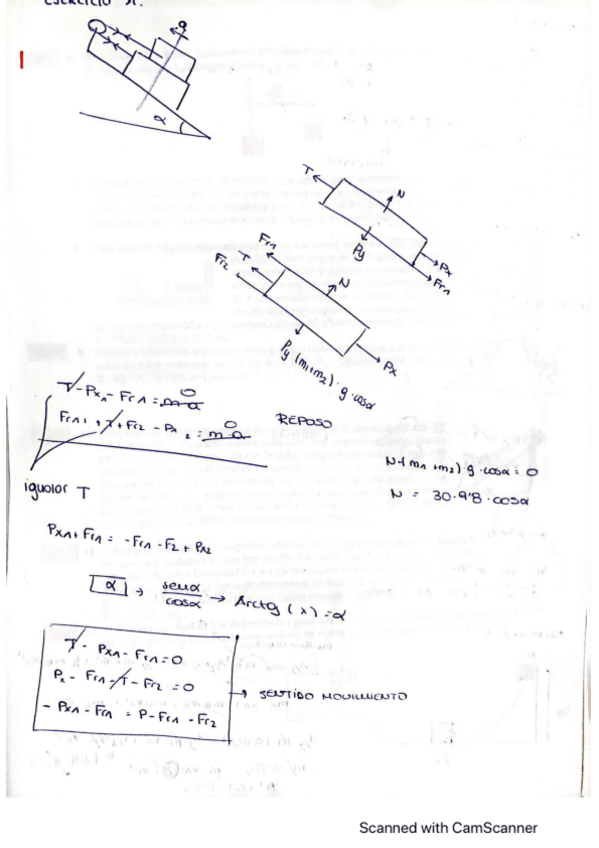 EJERCICIO
g
α
T
N
Py
Px
Fr1
Fr1
Fr2
T
N
Py (m1+m2)·g·cosα
Px
T - Px1 - Fr1 = m a 0
Fr1 + T + Fr2 - Px2 = m a 0
REPOSO
N-(m1+m2) g·cosα = 0
N = 30·9'8·cosα
igualar T
Px1 + Fr1 = -Fr1 - F2 + Px2
α → senα/cosα → Arctg (x) = α
T - Px1 - Fr1 = 0
Px - Fr1 - T - Fr2 = 0
- Px1 - Fr1 = P - Fr1 - Fr2
→ SENTIDO MOVIMIENTO
Scanned with CamScanner